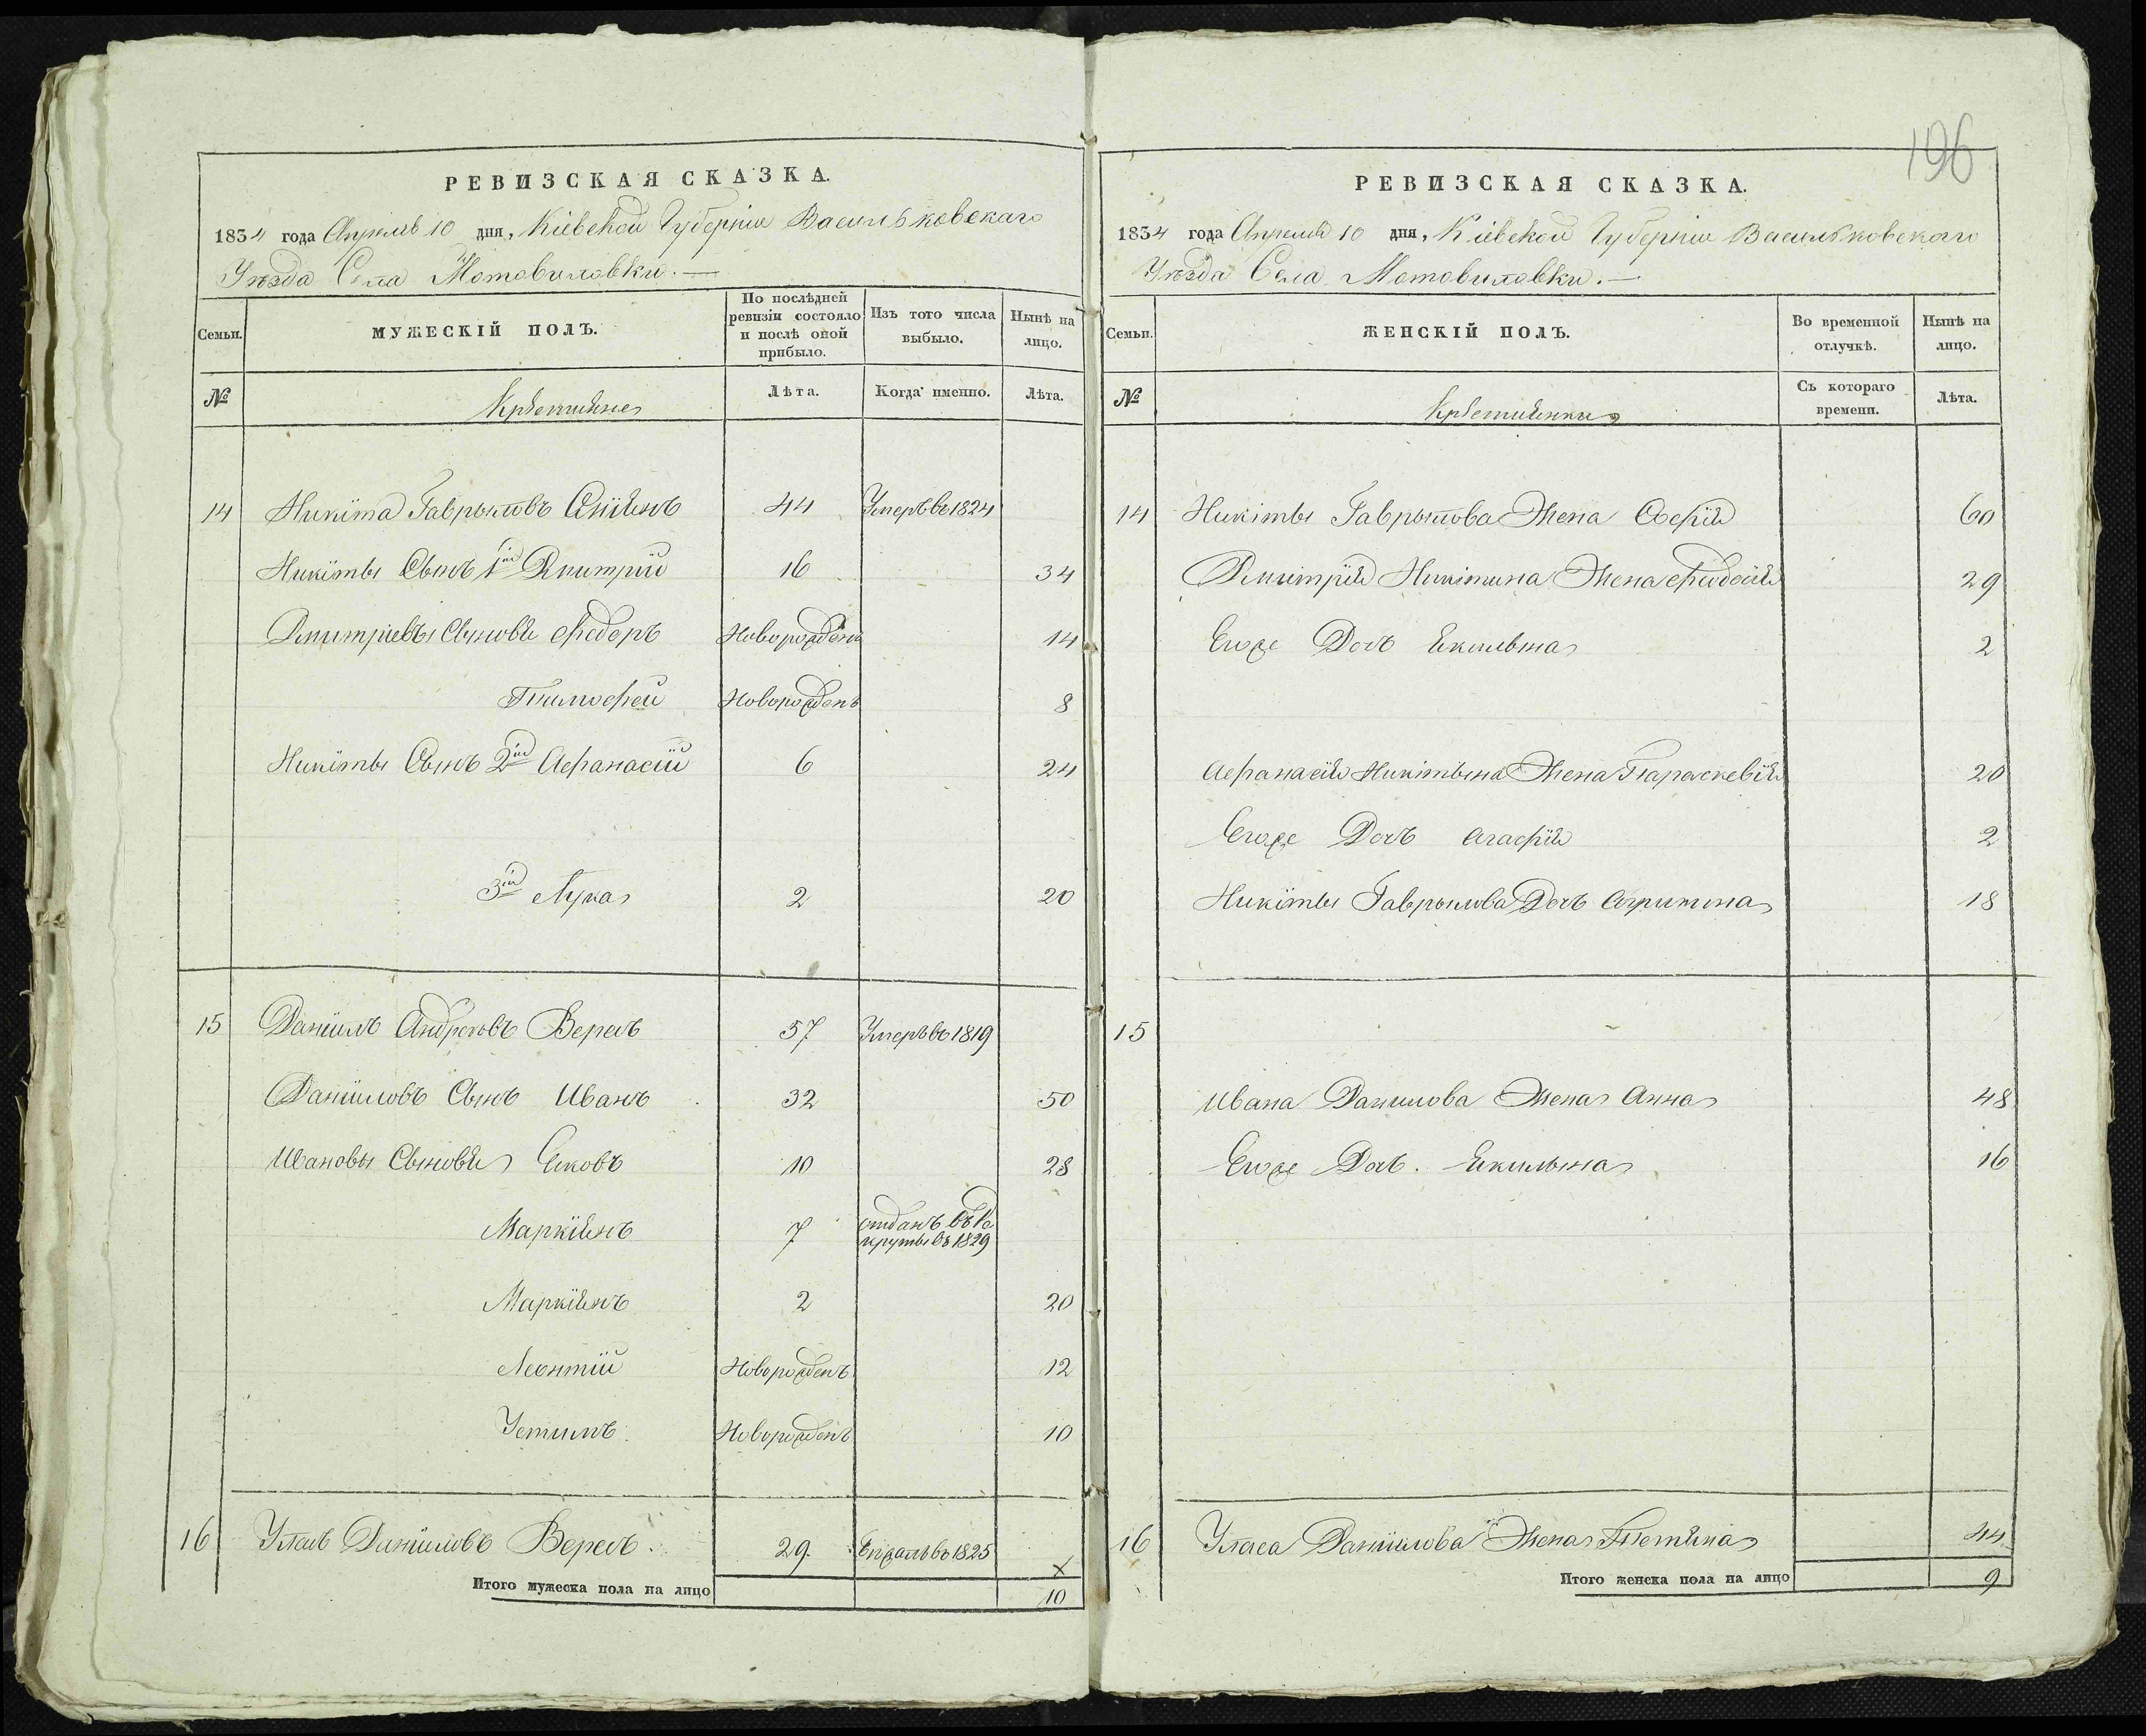 196
РЕВИЗСКАЯ СКАЗКА.
1834 года Апреля 10 дня, Кіевской Губерніи Васильковскаго
Уезда Села Мотовиловки. —
Семьи.
МУЖЕСКІЙ ПОЛЪ.
По послѣдней ревизіи состояло и послѣ оной прибыло.
Изъ того числа выбыло.
Нынѣ на лицо.
№
Крестьяне
Лѣта.
Когда именно.
Лѣта.
14 Никита Гаврыловъ 44 Умеръ въ 1824
Никиты Сынъ 1й Дмитрій 16 34
Дмитріевы Сыновья Федоръ Новорожденъ 14
Тимофей Новорожденъ 8
Никиты Сынъ 2й Афанасій 6 24
3й Лука 2 20
15 Даніилъ Андреевъ Вересъ 57 Умеръ въ 1819
Даніиловъ Сынъ Иванъ 32 50
Ивановы Сыновья Яковъ 10 28
Маркіянъ 7 отданъ въ Рекруты въ 1829
Маркіянъ 2 20
Леонтій Новорожденъ 12
Устимъ Новорожденъ 10
16 Уласъ Даніиловъ Вересъ. 29. въ 1825 х
Итого мужеска пола на лицо 10
РЕВИЗСКАЯ СКАЗКА.
1834 года Апреля 10 дня, Кіевской Губерніи Васильковскаго
Уезда Села Мотовиловки. —
Семьи.
ЖЕНСКІЙ ПОЛЪ.
Во временной отлучкѣ.
Нынѣ на лицо.
№
Крестьянки
Съ котораго времени.
Лѣта.
14 Никиты Гаврылова Жена Софія 60
Дмитрія Никитина Жена Феодосія 29
Егоже Дочь Екилына 2
Афанасія Никитына Жена Параскевія 20
Егоже Дочь Агафія 2
Никиты Гаврылова Дочь Агрипина 18
15
Ивана Данилова Жена Анна 48
Егоже Дочь. Екилына 16
16 Уласа Даніилова Жена Тетяна 44
Итого женска пола на лицо 9